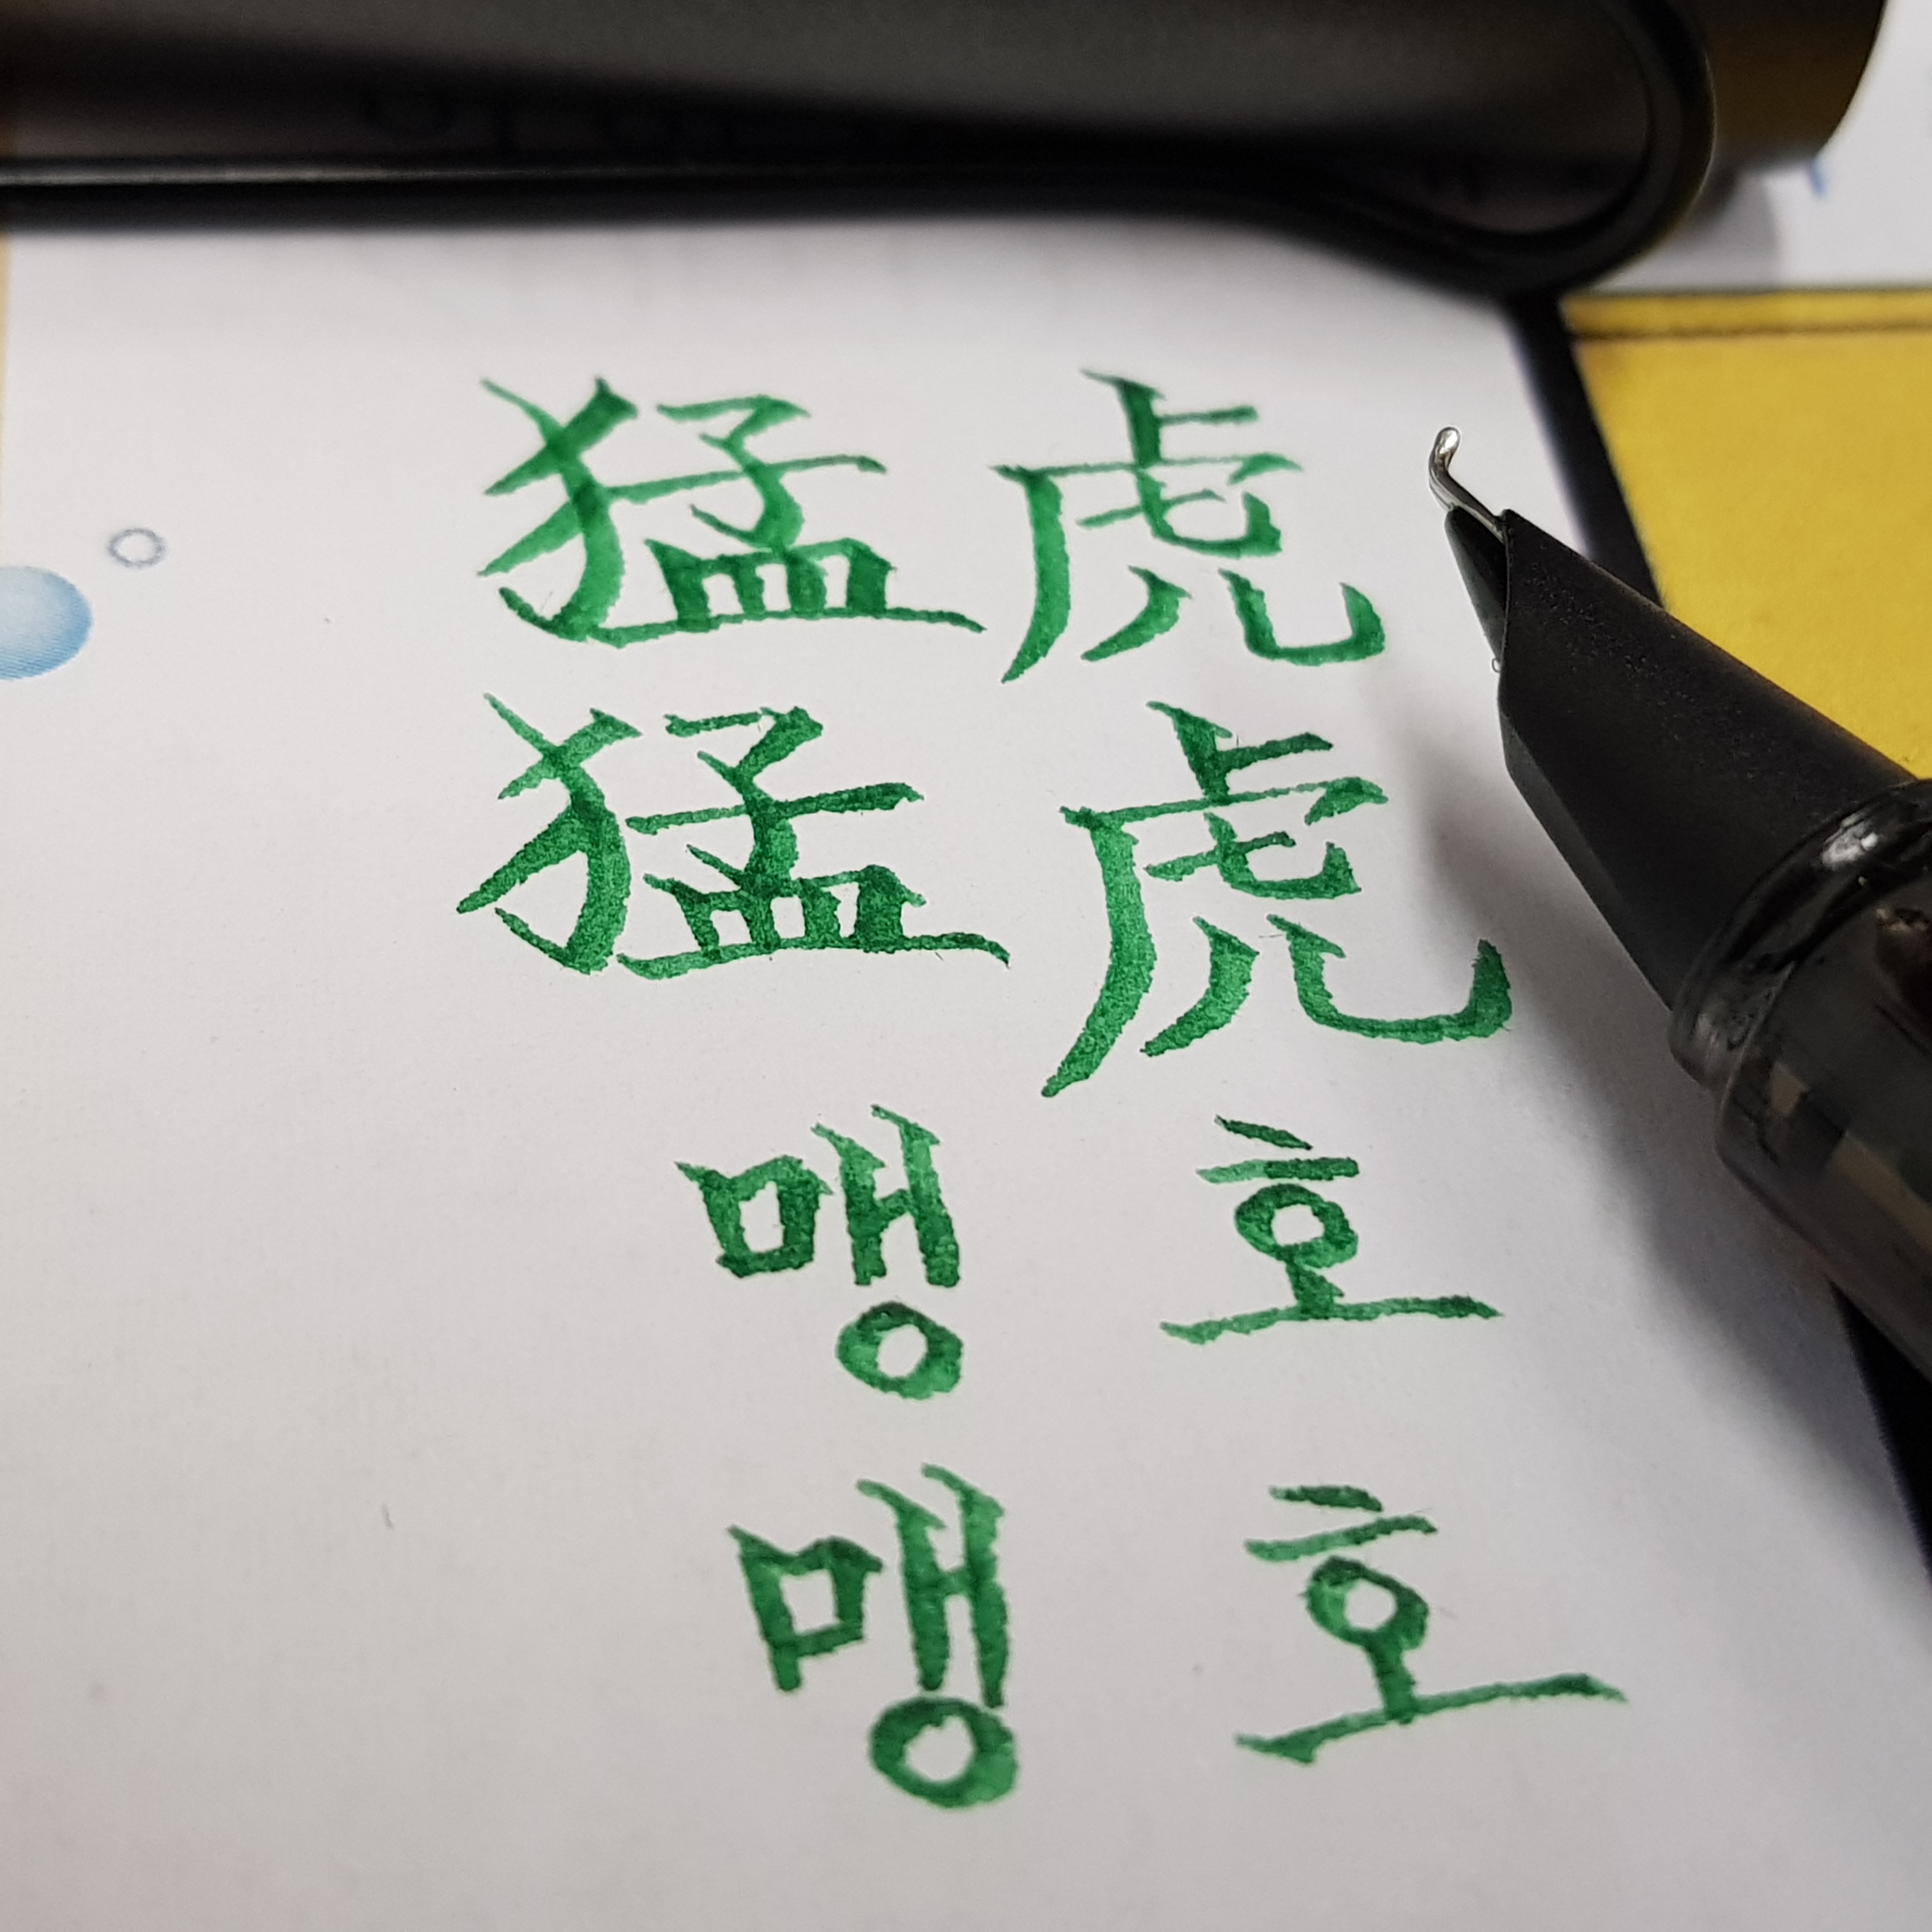 猛虎
猛虎
맹호
맹호